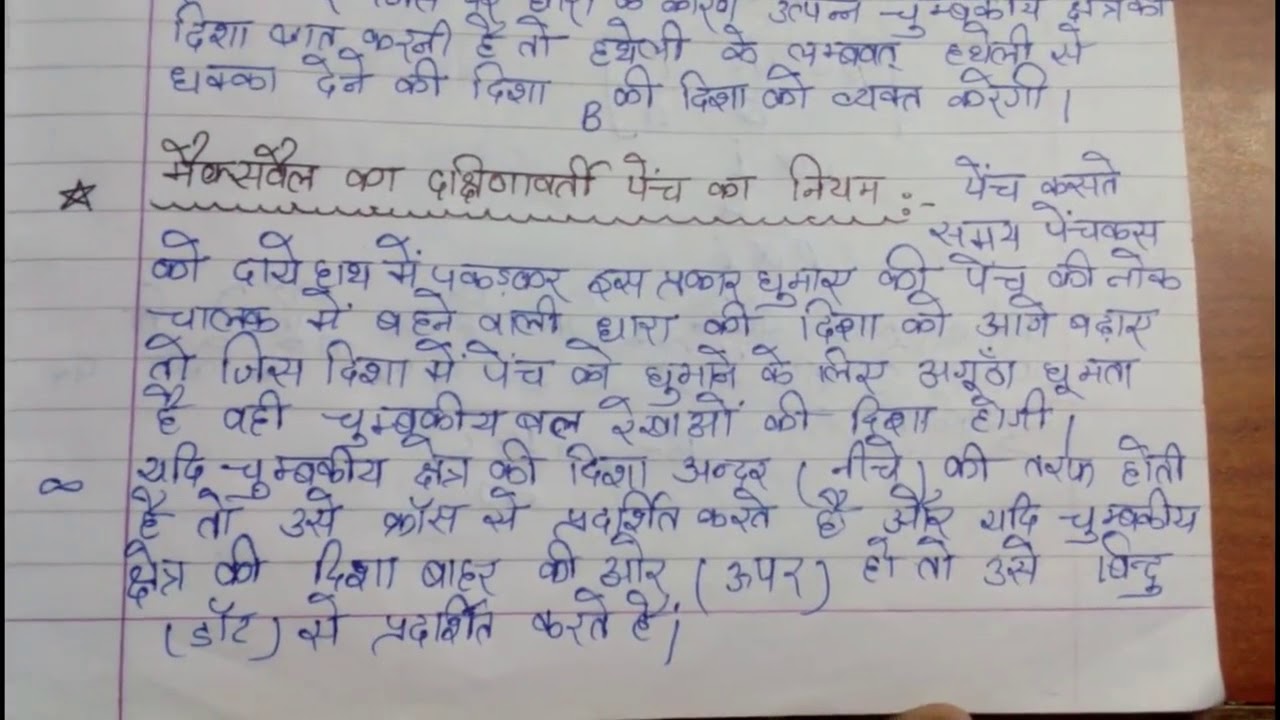 के कारण उत्पन्न चुम्बूकीय क्षेत्र की
दिशा ज्ञात करनी है तो हथेली के लम्बवत् हथेली से
धक्का देने की दिशा B की दिशा को व्यक्त करेगी।
☆ मैक्सवैल का दक्षिणावर्ती पेंच का नियम :- पेंच कसते
समय पेंचकस
को दाये हाथ में पकड़कर इस प्रकार घुमाए की पेंच की नोक
चालक में बहने वाली धारा की दिशा को आगे बढ़ाए
तो जिस दिशा में पेंच को घुमाने के लिए अगूठाँ घूमता
है वही चुम्बूकीय बल रेखाओं की दिशा होगी।
∞ यदि चुम्बकीय क्षेत्र की दिशा अन्दर (नीचे) की तरफ होती
है तो उसे क्रॉस से प्रदर्शित करते है और यदि चुम्बकीय
क्षेत्र की दिशा बाहर की ओर (ऊपर) हो तो उसे बिन्दु
(डॉट) से प्रदर्शित करते है।